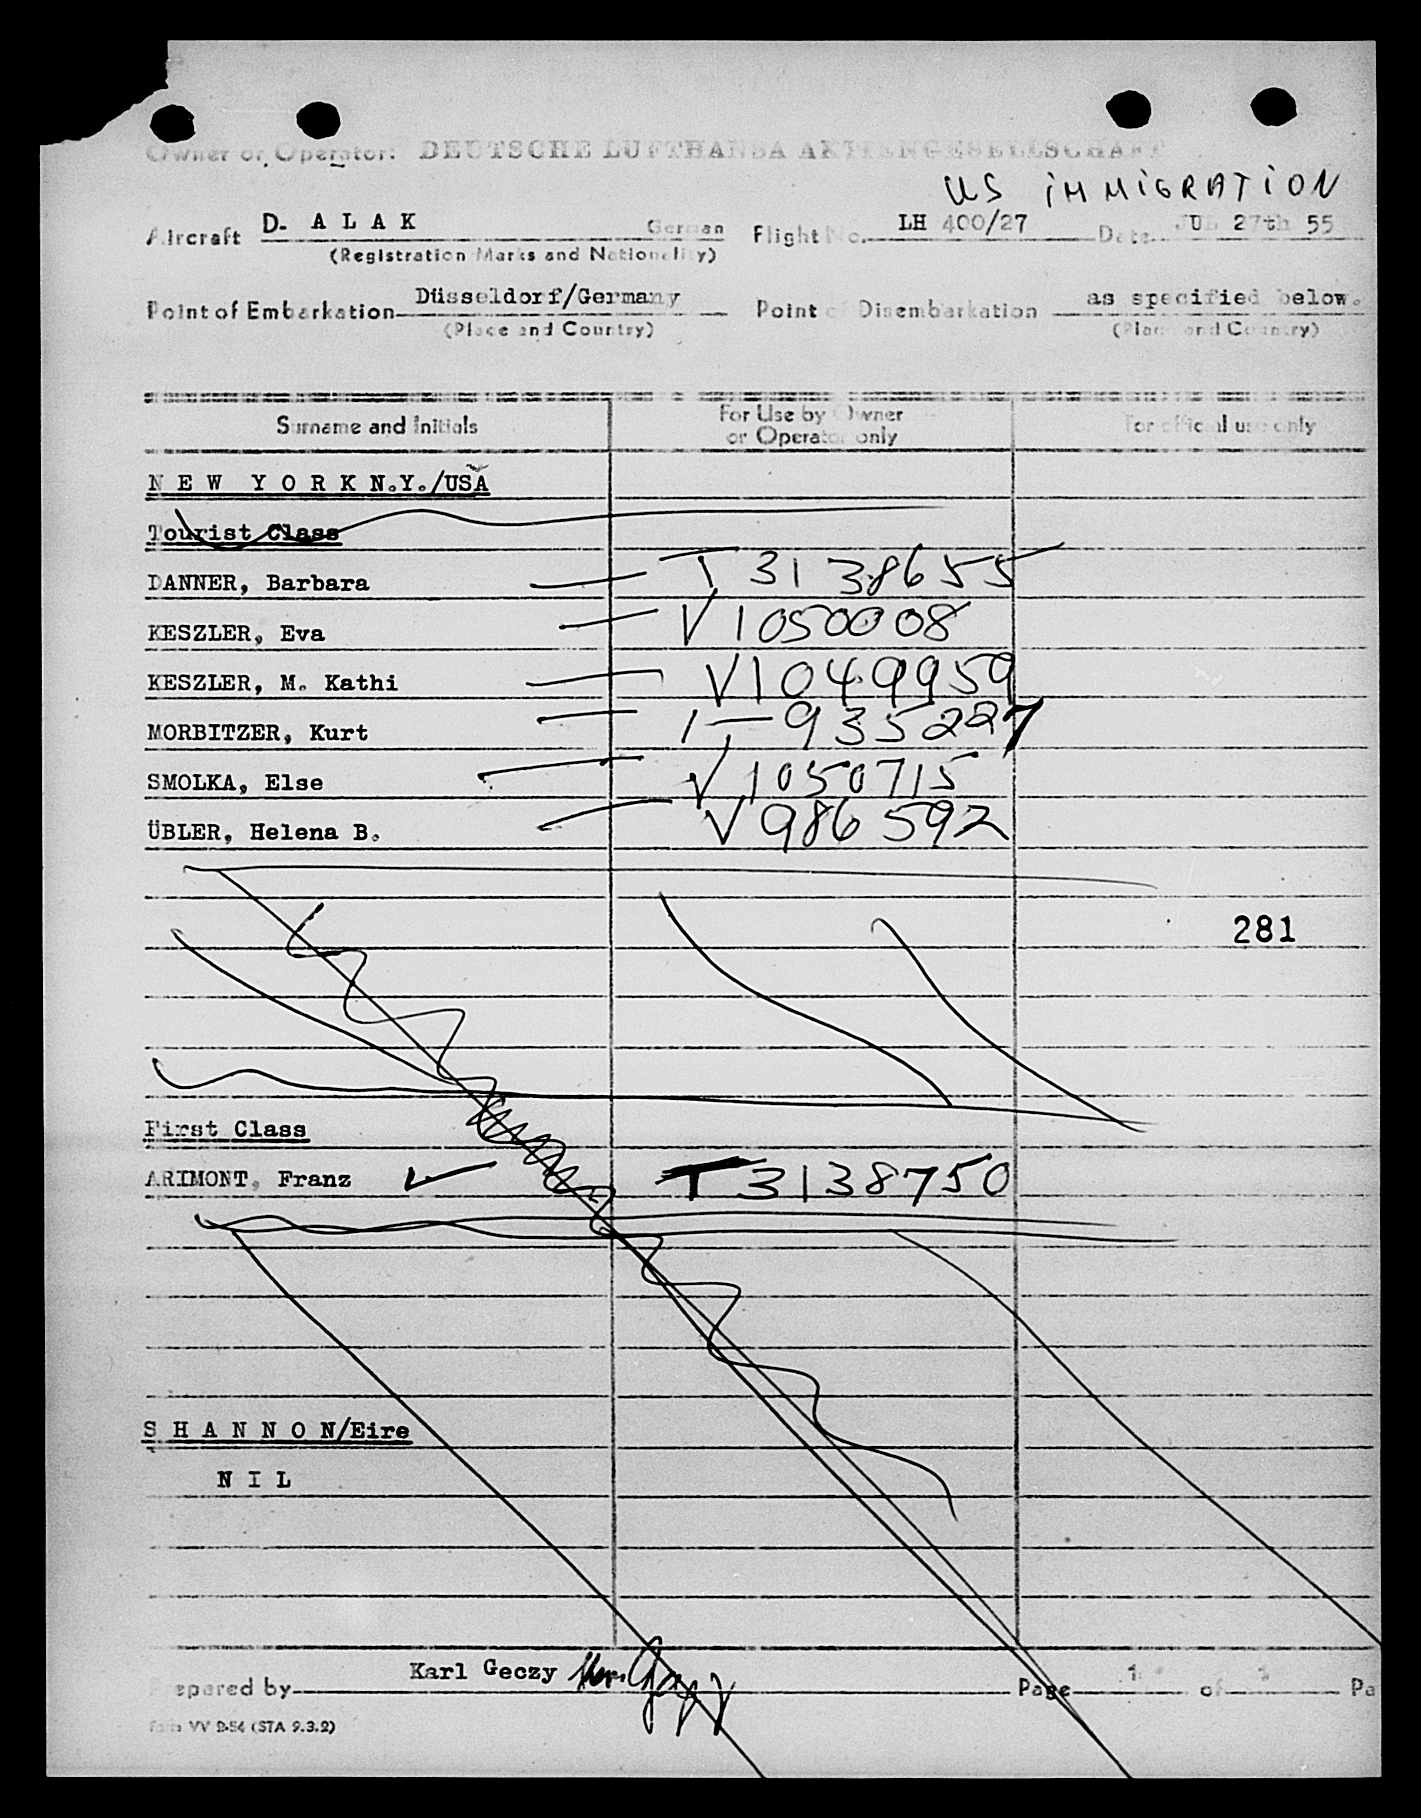 Owner or Operator: DEUTSCHE LUFTHANSA AKTIENGESELLSCHAFT
US IMMIGRATION
Aircraft D- A L A K German Flight No. LH 400/27 Date JUL 27th 55
(Registration Marks and Nationality)
Point of Embarkation Düsseldorf/Germany Point of Disembarkation as specified below.
(Place and Country) (Place and Country)
Surname and Initials For Use by Owner or Operator only For official use only
N E W Y O R K N.Y./USA
Tourist Class
DANNER, Barbara T 3138655
KESZLER, Eva V 1050008
KESZLER, M. Kathi V 1049959
MORBITZER, Kurt I-935227
SMOLKA, Else V 1050715
ÜBLER, Helena B. V 986592
281
First Class
ARIMONT, Franz T 3138750
S H A N N O N/Eire
N I L
Prepared by Karl Geczy Page 1 of 1 Pa
Form VV 2-54 (STA 9.3.2)